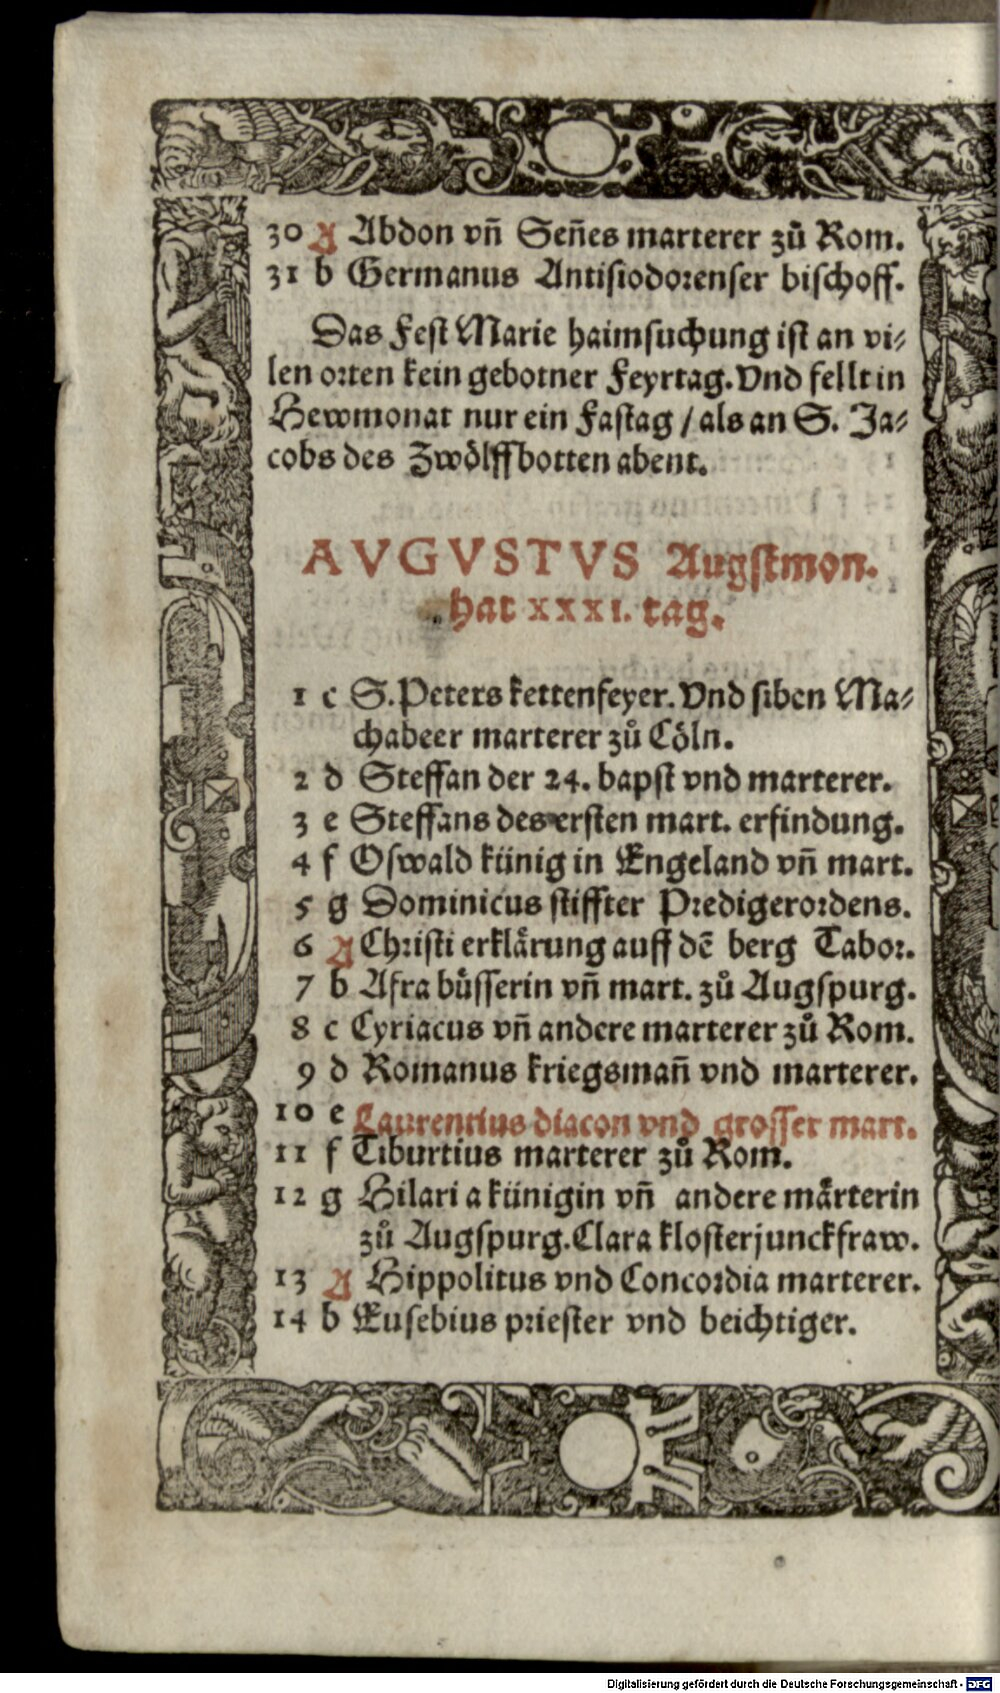 30 A Abdon vñ Señes marterer zů Rom.
31 b Germanus Antisiodorenser bischoff.
Das Fest Marie haimsuchung ist an vi⸗
len orten kein gebotner Feyrtag. Vnd fellt in
Hewmonat nur ein Fastag / als an S. Ja⸗
cobs des Zwölffbotten abent.
AVGVSTVS Augstmon.
hat XXXI. tag.
1 c S. Peters kettenfeyer. Vnd siben Ma⸗
chabeer marterer zů Cöln.
2 d Steffan der 24. bapst vnd marterer.
3 e Steffans des ersten mart. erfindung.
4 f Oswald künig in Engeland vñ mart.
5 g Dominicus stiffter Predigerordens.
6 A Christi erklärung auff dē berg Tabor.
7 b Afra büsserin vñ mart. zů Augspurg.
8 c Cyriacus vñ andere marterer zů Rom.
9 d Romanus kriegsmañ vnd marterer.
10 e Laurentius diacon vnd grosser mart.
11 f Tiburtius marterer zů Rom.
12 g Hilaria künigin vñ andere märterin
zů Augspurg. Clara klosterjunckfraw.
13 A Hippolitus vnd Concordia marterer.
14 b Eusebius priester vnd beichtiger.
Digitalisierung gefördert durch die Deutsche Forschungsgemeinschaft - DFG